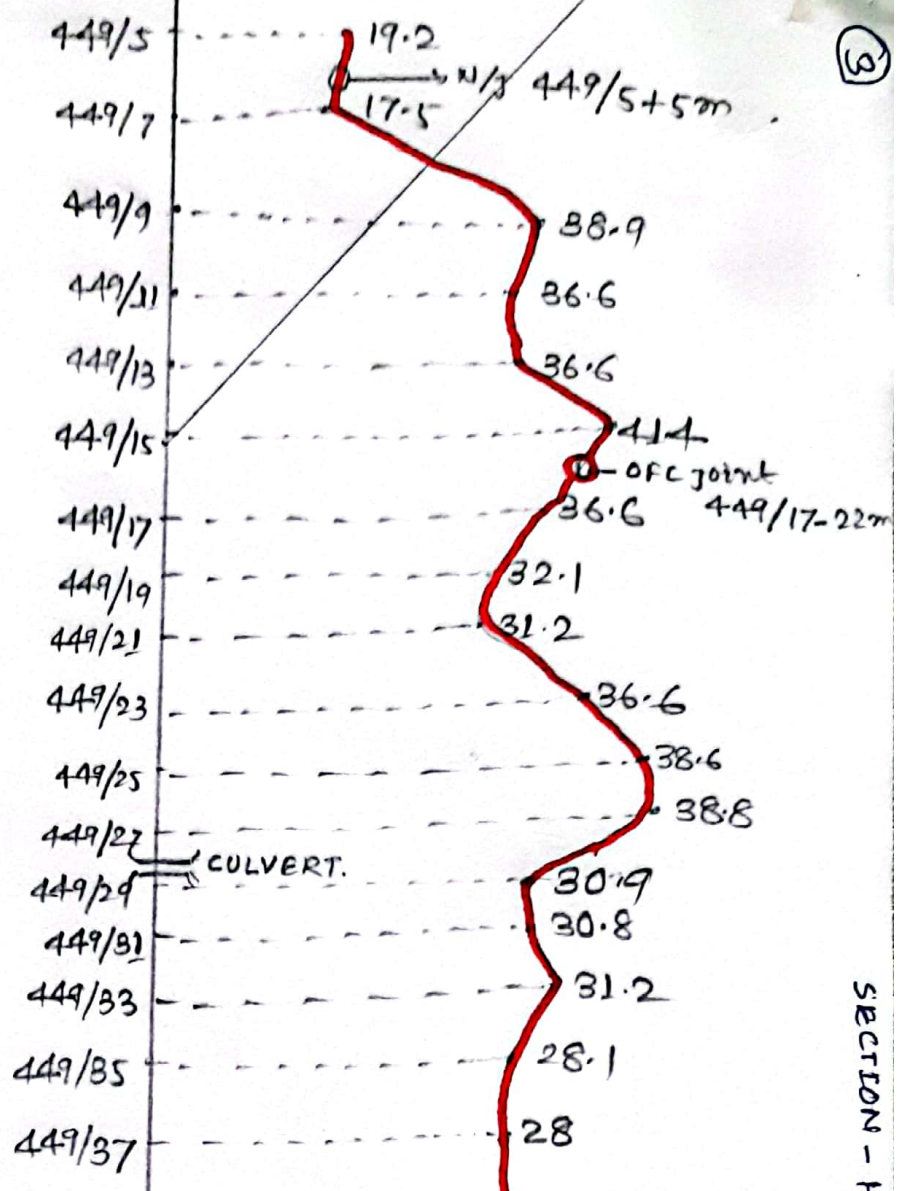 3
449/5 19.2
N/J 449/5+5m
449/7 17.5
449/9 38.9
449/11 36.6
449/13 36.6
449/15 41.4
OFC joint
449/17-22m
449/17 36.6
449/19 32.1
449/21 31.2
449/23 36.6
449/25 38.6
449/27 38.8
CULVERT.
449/29 30.9
449/31 30.8
449/33 31.2
449/35 28.1
449/37 28
SECTION -